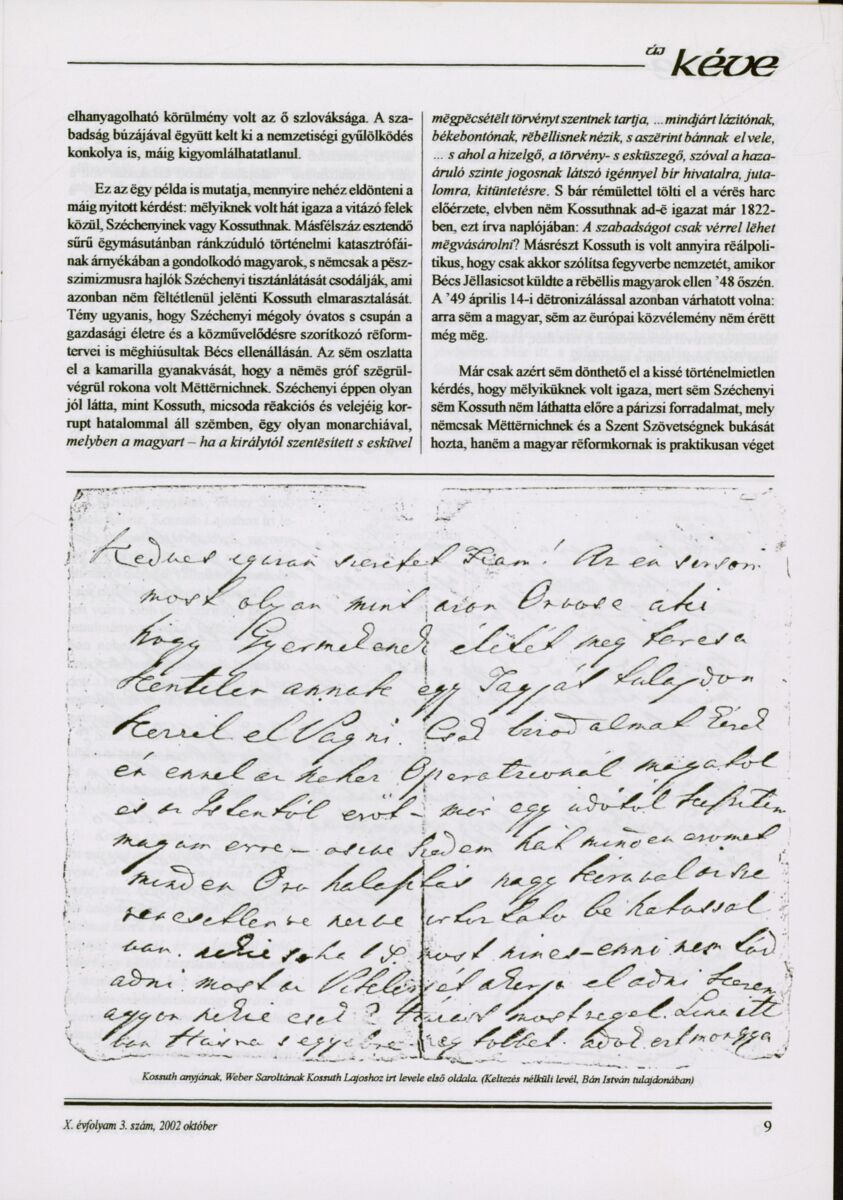 új kéve
elhanyagolható körülmény volt az ő szlováksága. A sza-
badság búzájával ëgyütt kelt ki a nemzetiségi gyűlölködés
konkolya is, máig kigyomlálhatatlanul.
Ez az ëgy példa is mutatja, mennyire nehéz eldönteni a
máig nyitott kérdést: mëlyiknek volt hát igaza a vitázó felek
közül, Széchenyinek vagy Kossuthnak. Másfélszáz esztendő
sűrű ëgymásutánban ránkzúduló történelmi katasztrófái-
nak árnyékában a gondolkodó magyarok, s nëmcsak a pësz-
szimizmusra hajlók Széchenyi tisztánlátását csodálják, ami
azonban nëm fëltétlenül jelënti Kossuth elmarasztalását.
Tény ugyanis, hogy Széchenyi mégoly óvatos s csupán a
gazdasági életre és a közművelődésre szorítkozó rëform-
tervei is mëghiúsultak Bécs ellenállásán. Az sëm oszlatta
el a kamarilla gyanakvását, hogy a nëmës gróf szëgrül-
végrül rokona volt Mëttërnichnek. Széchenyi éppen olyan
jól látta, mint Kossuth, micsoda rëakciós és velejéig kor-
rupt hatalommal áll szëmben, ëgy olyan monarchiával,
melyben a magyart – ha a királytól szentësített s esküvel
mëgpëcsételt törvényt szentnek tartja, ... mindjárt lázítónak,
békebontónak, rëbëllisnek nézik, s aszërint bánnak el vele,
... s ahol a hizelgő, a törvény- s esküszegő, szóval a haza-
áruló szinte jogosnak látszó igénnyel bir hivatalra, juta-
lomra, kitüntetésre. S bár rémülettel tölti el a vérës harc
előérzete, elvben nëm Kossuthnak ad-ë igazat már 1822-
ben, ezt írva naplójában: A szabadságot csak vérrel lëhet
mëgvásárolni? Másrészt Kossuth is volt annyira rëálpoli-
tikus, hogy csak akkor szólítsa fegyverbe nemzetét, amikor
Bécs Jëllasicsot küldte a rëbëllis magyarok ellen '48 őszén.
A '49 április 14-i dëtronizálással azonban várhatott volna:
arra sëm a magyar, sëm az európai közvélemény nëm érëtt
még mëg.
Már csak azért sëm dönthető el a kissé történelmietlen
kérdés, hogy mëlyiküknek volt igaza, mert sëm Széchenyi
sëm Kossuth nëm láthatta előre a párizsi forradalmat, mely
nëmcsak Mëttërnichnek és a Szent Szövetségnek bukását
hozta, hanëm a magyar rëformkornak is praktikusan véget
Kedves igazan szeretet Fiam! Az én sorsom
most olyan mint azon Orvose aki
hogy Gyermekenek életét meg tarcsa
kentelen annak egy Tagját tulajdon
Kezzel el Vagni. Csak birodalmat kérek
én ennel a neher Operatzional magatol
es az Istentöl eröt – mar egy idötöl
magam erre – hat minden eromet
minden Ora halaſtas nagy
be hatassal
van. most nincs – enni nem tud
adni most a el adni
most regel. Lina itt
van tobbet.
Kossuth anyjának, Weber Saroltának Kossuth Lajoshoz irt levele első oldala. (Keltezés nélküli levél, Bán István tulajdonában)
X. évfolyam 3. szám, 2002 október
9